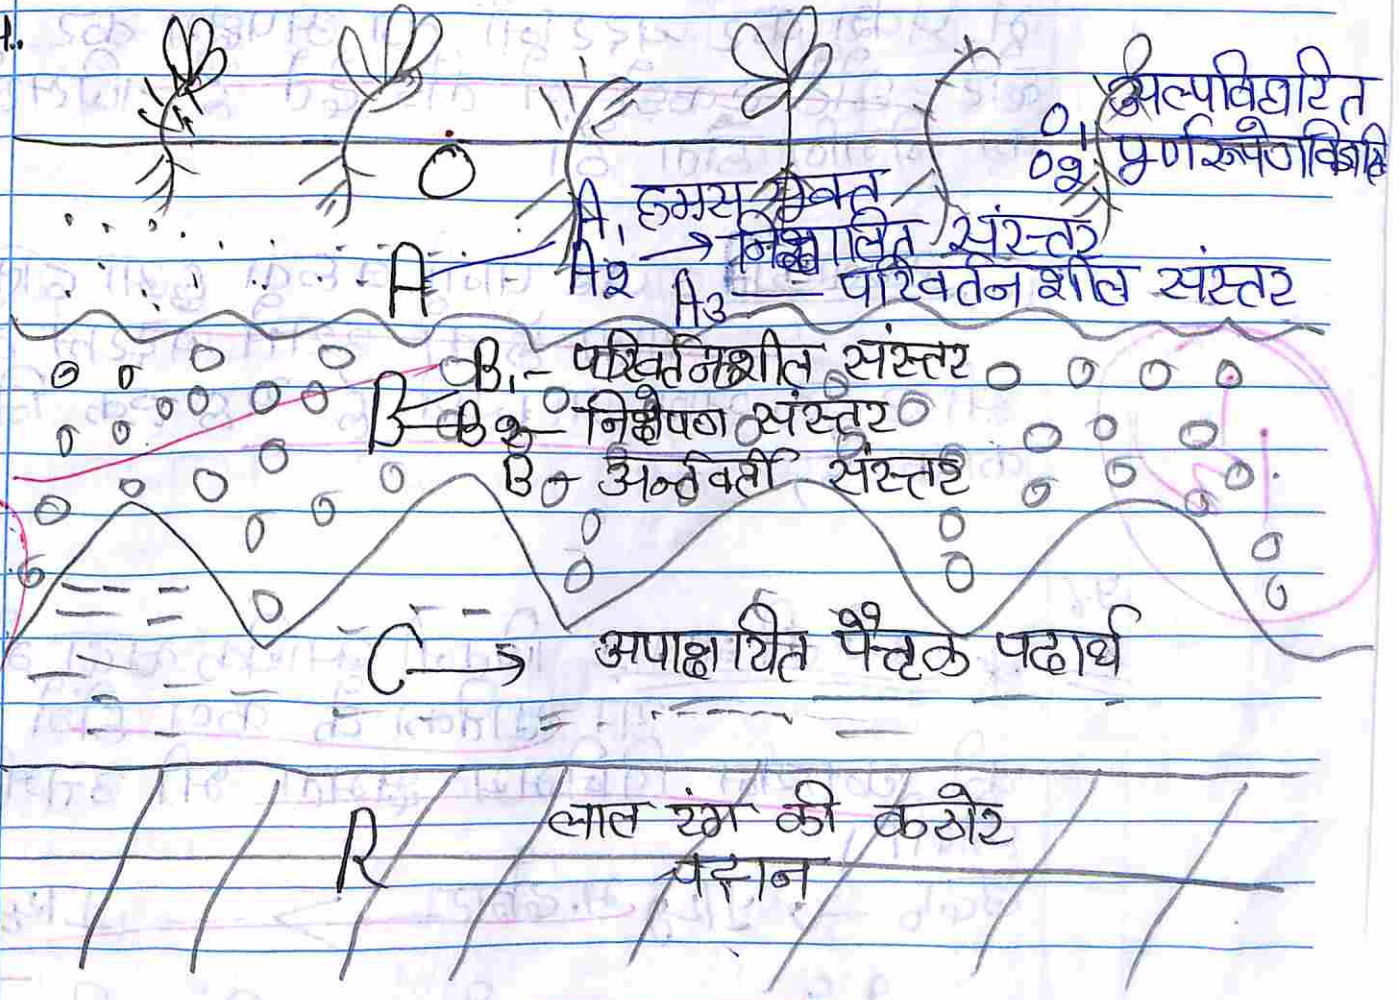 O
O₁ अल्पविघटित
O२ पूर्णरूपेण
A
A₁ ह्मस युक्त
A२ → निक्षालित संस्तर
A₃ — परिवर्तनशील संस्तर
B
B₁ - परिवर्तनशील संस्तर
B२ - निक्षेपण संस्तर
B - अर्न्तवर्ती संस्तर
C → अपाक्षयित पैतृक पदार्थ
R
लाल रंग की कठोर
चट्टान